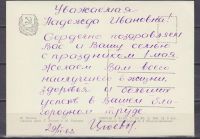 Уважаемая
Надежда Ивановна!
Сердечно поздравляем
Вас и Вашу семью
с праздником 1 мая
Желаем Вам всего
наилучшего в жизни,
здоровья и больших
успехов в Вашем бла-
городном труде